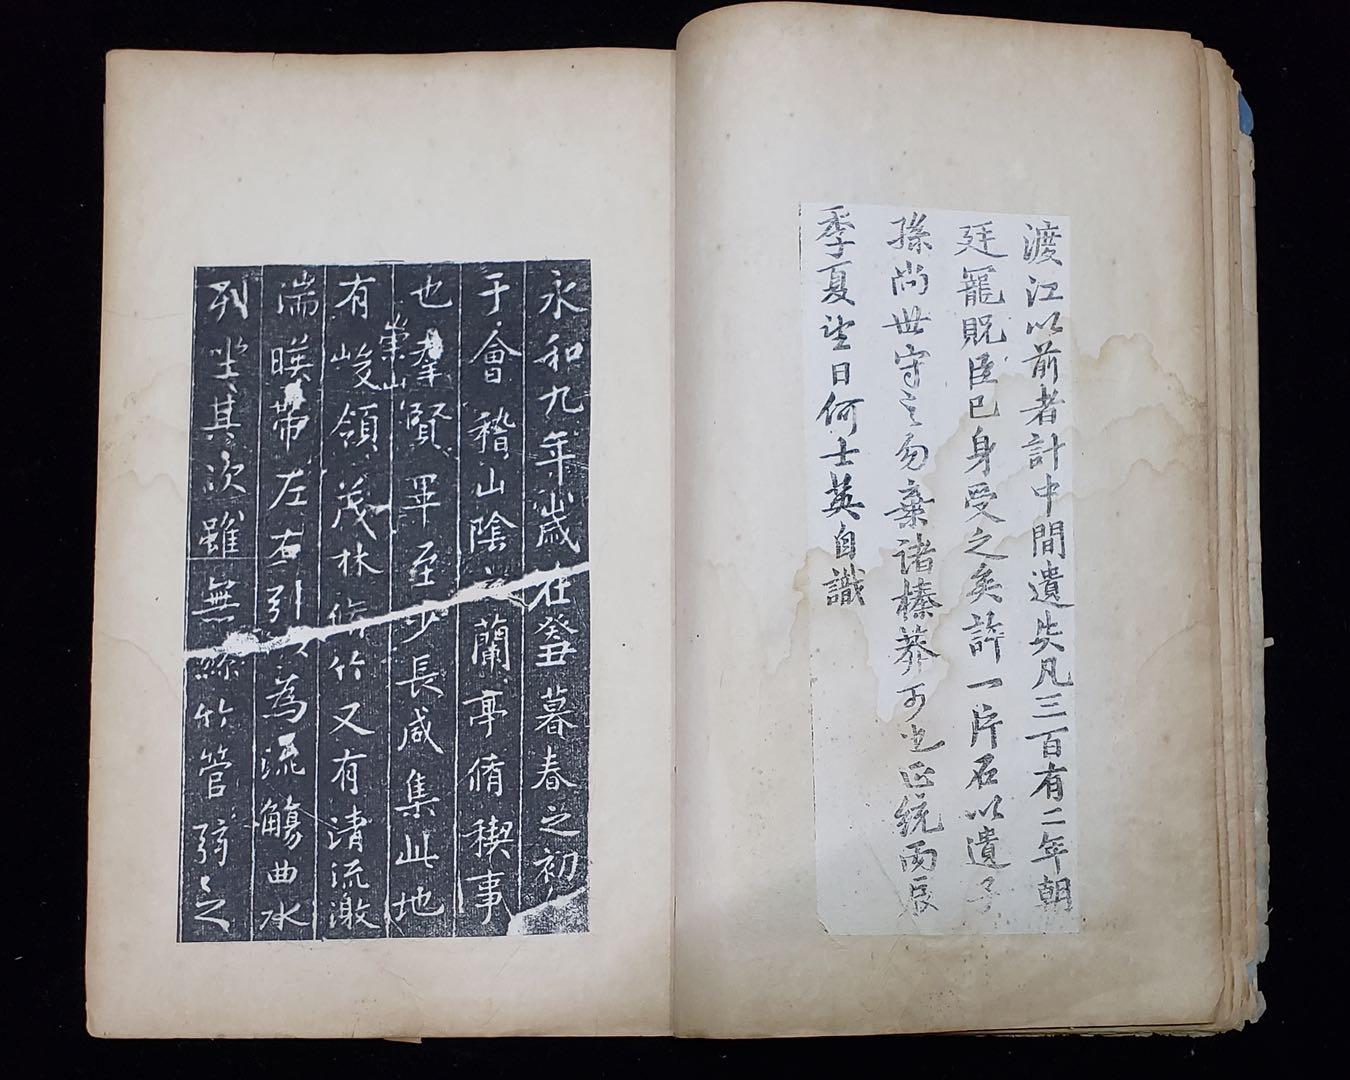 渡江以前者計中間遺失凡三百有二年朝
廷寵貺臣已身受之矣許一片石以遺子
孫尚世守之勿棄諸榛莽可也正統丙辰
季夏望日何士英自識
永和九年歲在癸丑暮春之初
于會稽山陰之蘭亭脩稧事
也群賢畢至少長咸集此地
有崇山峻領茂林脩竹又有清流激
湍暎帶左右引以為流觴曲水
列坐其次雖無絲竹管弦之